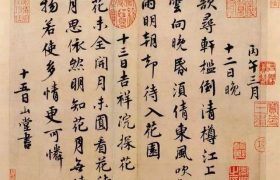 丙午三月
十二日晚
欲尋軒檻倒清樽江上
雲向晚昏須倩東風吹
雨明朝却待入花園
十三日吉祥院探花
花未全開月未圓看花
月思依然明知花月無情
物若使多情更可憐
十五日山堂書